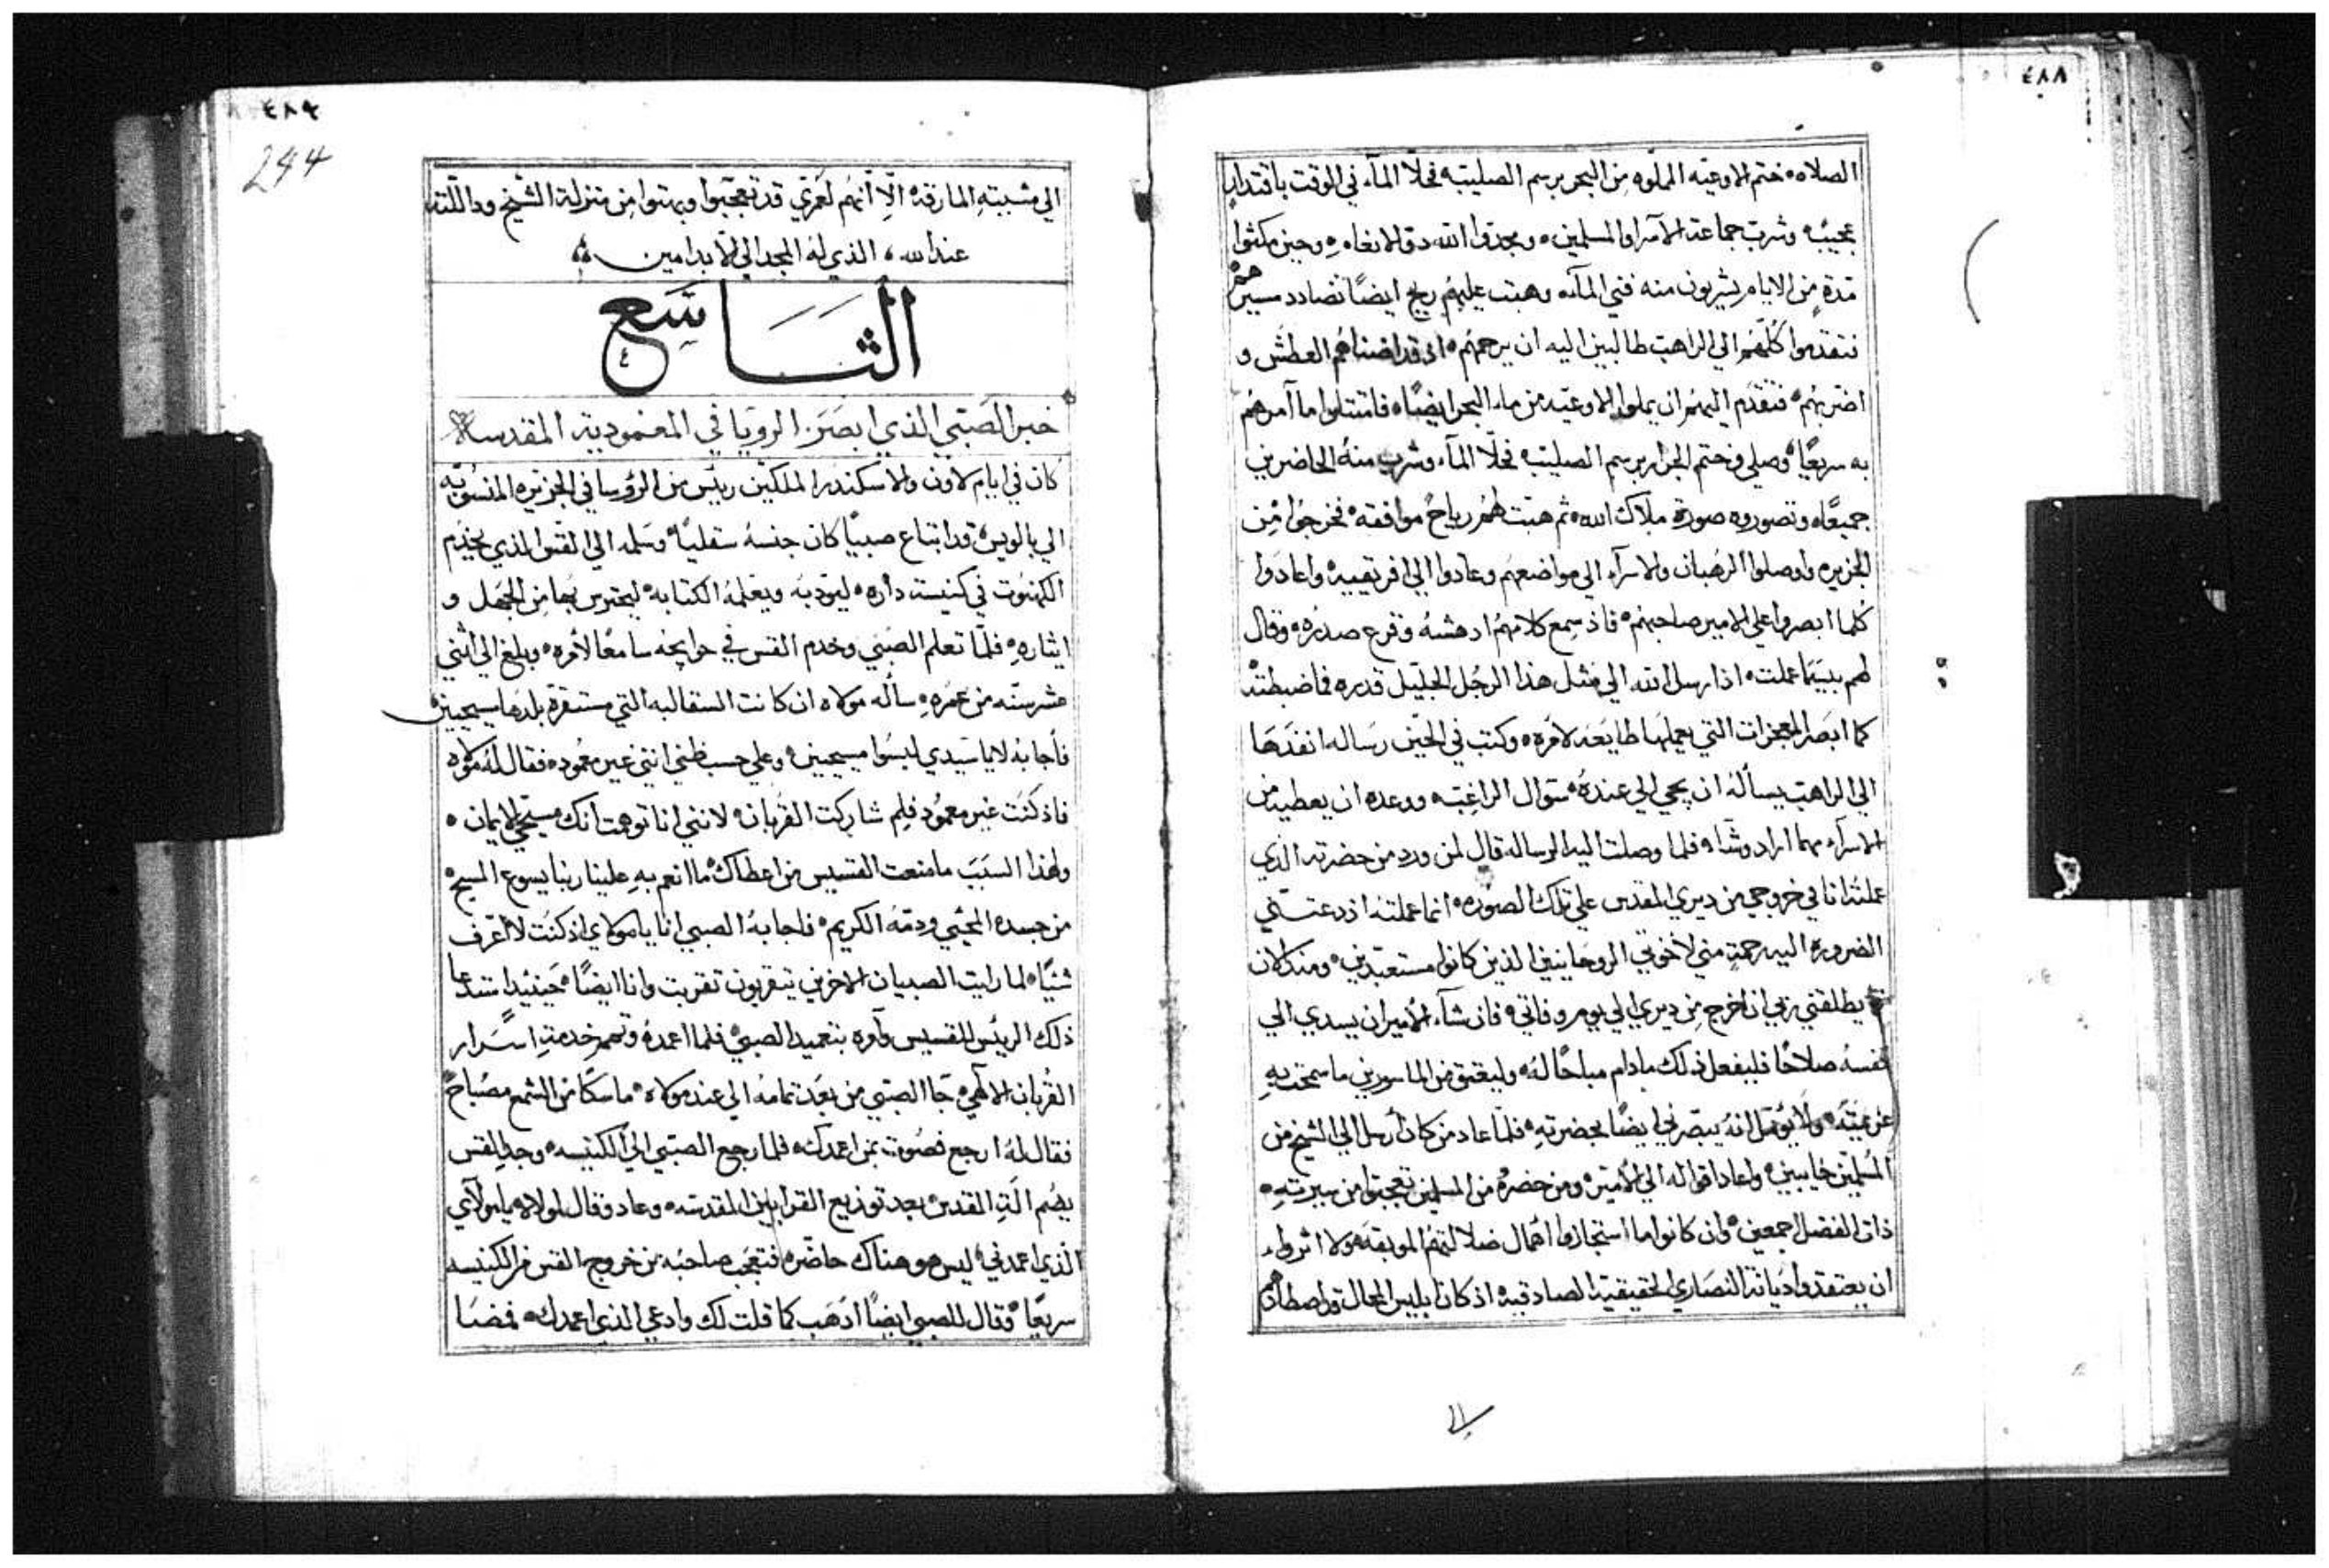 ٤٨٨
الصلاه ختم الاوعيه المملوه من البحر برسم الصليب فحلا المآء في الوقت باقتدار
عجيب وشرب جماعة الآسرا والمسلمين ومجدوا الله دو الانعام وحين مكثوا
مدة من الايام يشربون منه فني المآء وهبت عليهم ريح ايضًا تضادد مسيرهم
فتقدموا كلهم الي الراهب طالبين اليه ان يرحمهم اد قد اضناهم العطش و
اضربهم فتقدم اليهم ان يملوا الاوعيه من ماء البحر ايضًا فامتثلوا ما آمرهم
به سريعًا وصلي وختم الجرار برسم الصليب فحلا المآء وشرب منه الحاضرين
جميعًا وتصوروه صورة ملاك الله ثم هبت لهم رياح موافقه فخرجوا من
الجزيره واوصلوا الرهبان والاسرآء الي مواضعهم وعادوا الي افريقييه واعادوا
كلما ابصروا علي الامير صاحبهم فاذ سمع كلامهم ادهشه وقرع صدره وقال
لهم بيسما عملت اذ ارسل الله الي مثل هذا الرجل الجليل قدره فما ضبطته
كما ابصر المعجزات التي يعملها طايعه لامره وكتب في الحين رساله انفدها
الي الراهب يسأله ان يجي الي عنده سوال الراغب ووعده ان يعطيه من
الاسرآء مهما اراد وشآء فلما وصلت اليه الرساله قال لمن ورد من حضرته الذي
عملته انا في خروجي من ديري المقدس علي تلك الصوره انما عملته اذ دعتني
الضروره اليه رحمة مني لأخوتي الروحانيين الذين كانوا مستعبدين ومند الان
يطلقني ربي ان اخرج من ديري الي يوم وفاتي فان شآء الأمير ان يسدي الي
نفسه صلاحًا فليفعل ذلك مادام مباحًا له وليعتق من الماسورين ما سمحت به
عزيمته ولا يؤمل انه يبصرني ايضًا بحضرته فلما عاد من كان أرسل الي الشيخ من
المسلمين خايبين واعادا قواله الي الأمير ومن حضره من المسلمين تعجبوا من سيرته
ذات الفضل اجمعين وان كانوا ما استجازوا اهمال ضلالتهم الموبقه ولا اثروا
ان يعتقدوا ديانة النصاري الحقيقية الصادقيه اذ كان ابليس المحال قد اصطادهم
٤٨٩
244
الي مشيئته المارقة الا آنهم لعمري قد تعجبوا وبهتوا من منزلة الشيخ ودالته
عند الله الذي له المجد الي الابد امين
التاسع
خبر الصبي الذي ابصر الرويا في المعمودية المقدسه
كان في ايام لاون والاسكندر الملكين ريس من الروسا في الجزيره المنسوبه
الي بالويس قد ابتاع صبيًا كان جنسه سقلبيًا وسلمه الي القس الذي يخدم
الكهنوت في كنيسة داره ليودبه ويعلمه الكتابه ليحترس بها من الجهل و
ايثاره فلما تعلم الصبي وخدم القس في حوايجه سامعًا لأمره وبلغ الي اثني
عشر سنه من عمره سأله مولاه ان كانت السقالبه التي مستقرة بلدها مسيحيين
فأجابه لا يا سيدي ليسوا مسيحيين وعلي حسب ظني انني غير معمود فقال له مولاه
فاذ كنت غير معمود فلم شاركت القربان لانني انا توهمت انك مسيحي الايمان
ولهذا السبب ما منعت القسيس من اعطاك ما انعم به علينا ربنا يسوع المسيح
من جسده المحيي ودمه الكريم فاجابه الصبي انا يا مولاي اذ كنت لا أعرف
شيًا لما رايت الصبيان الاخرين يتقربون تقربت وانا ايضًا حينيد استدعا
ذلك الريس القسيس وأمره بتعميد الصبي فلما اعمده وتمم خدمة اسرار
القربان الالهي جا الصبي من بعد تمامه الي عند مولاه ماسكًا من الشمع مصباح
فقال له ارجع فصوت بمن اعمدك فلما رجع الصبي الي الكنيسه وجد القس
يضم آلة القدس بعد توزيع القرابين المقدسه وعاد وقال لمولاه يا مولآي
الذي اعمدني ليس هو هناك حاضره فتعجب صاحبه من خروج القس من الكنيسه
سريعًا وقال للصبي ايضًا اذهب كما قلت لك وادعي الذي اعمدك فمضا